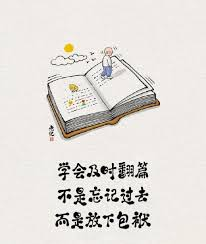 学会及时翻篇
不是忘记过去
而是放下包袱